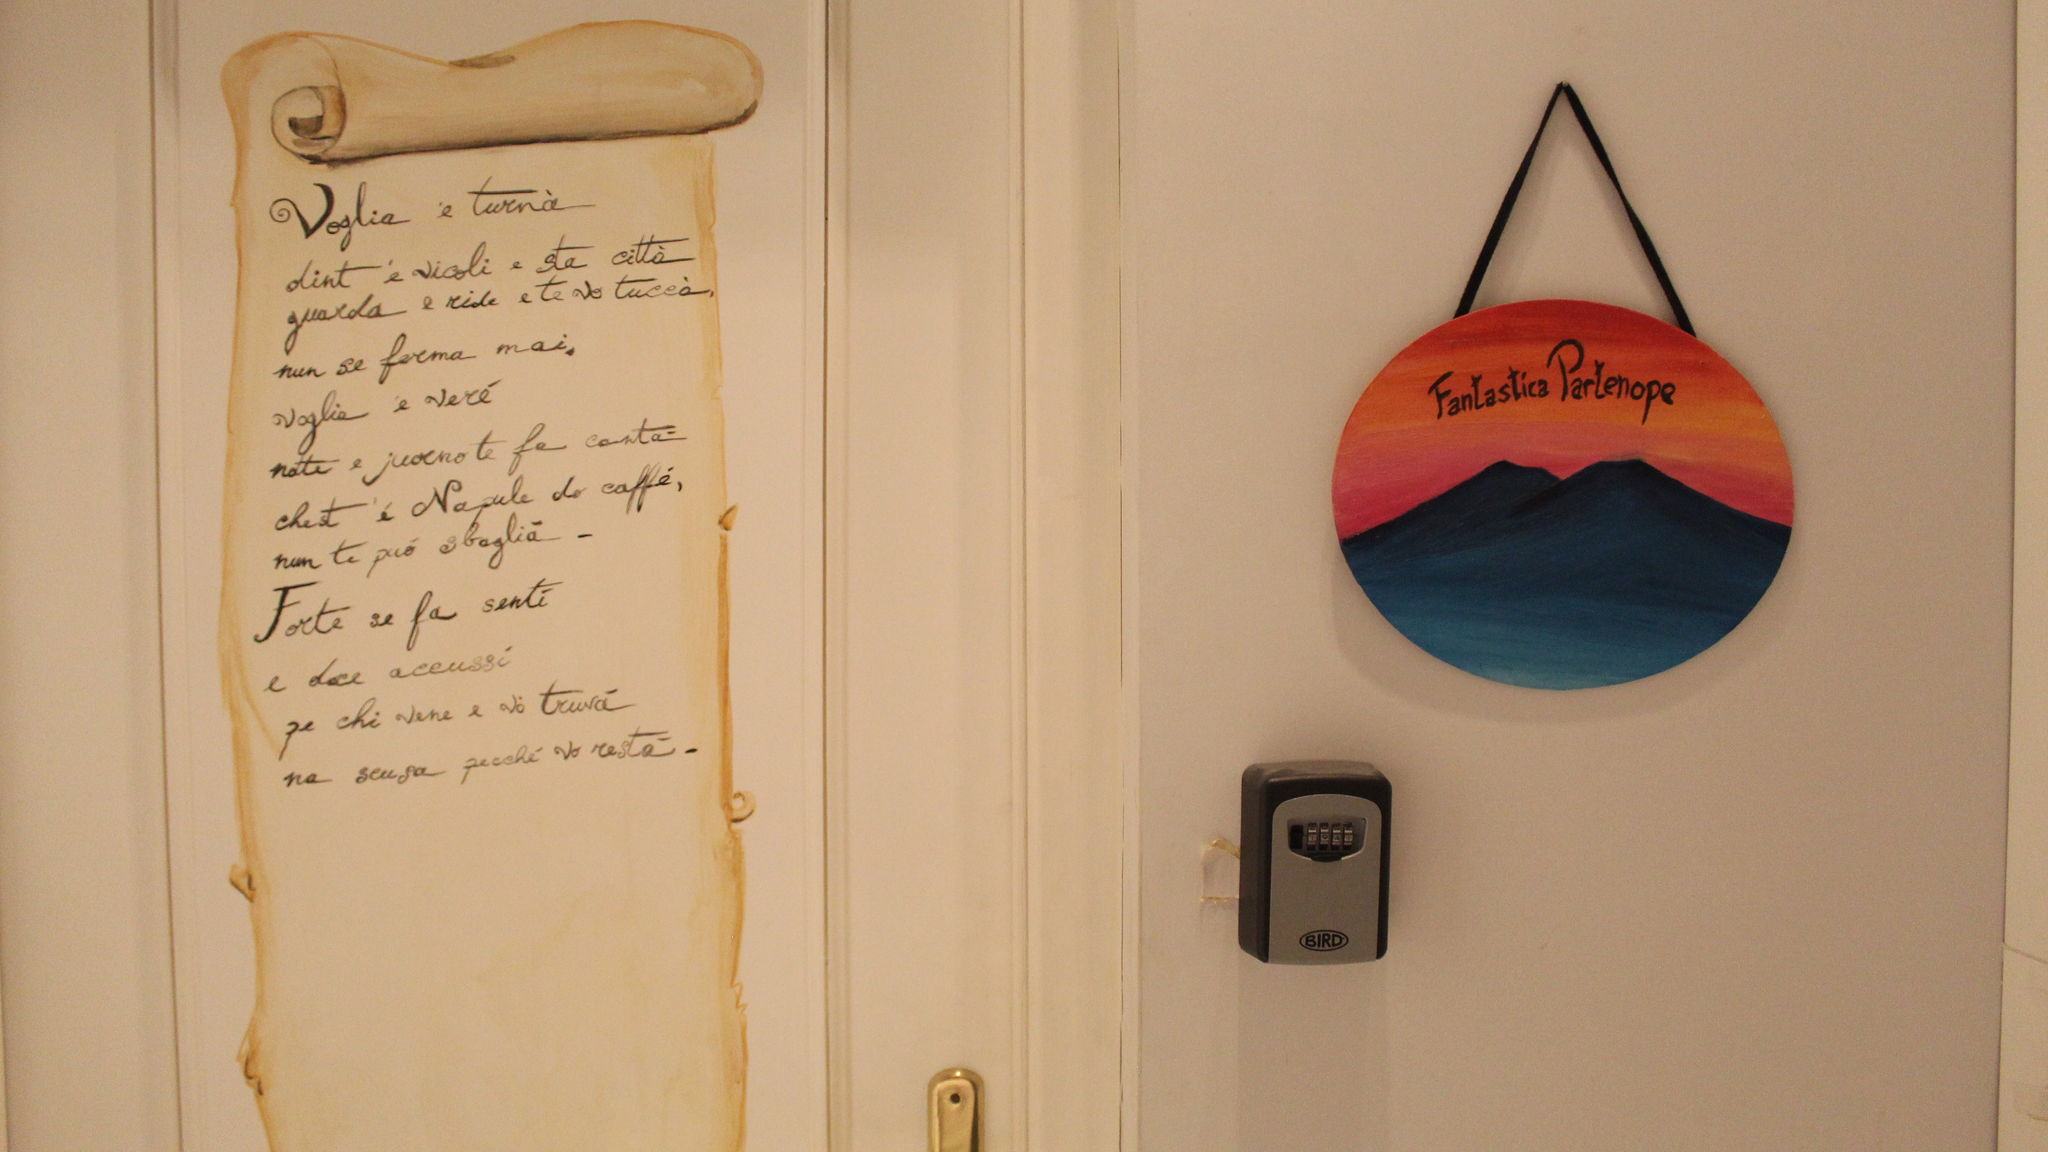 Voglia 'e turnà
dint 'e vicoli e sta città
guarda e ride e te vo tuccà,
nun se ferma mai.
voglia 'e veré
notte e juorno te fa cantà
chest 'é Napule do caffé,
nun te puó sbaglià -
Forte se fa sentí
e doce accussí
pe chi vene e vò truvá
na scusa pecché vo restá -
Fantastica Partenope
BIRD